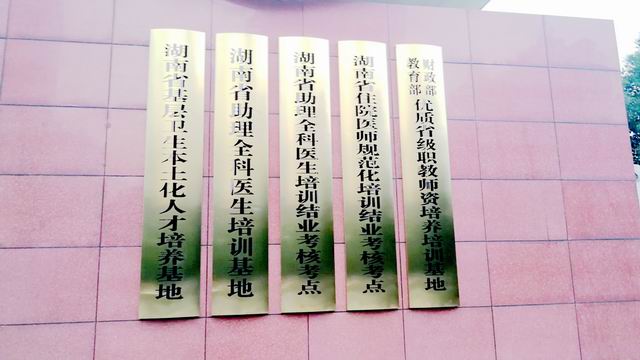 湖南省基层卫生本土化人才培养基地
湖南省助理全科医生培训基地
湖南省助理全科医生培训结业考核考点
湖南省住院医师规范化培训结业考核考点
财政部
教育部
优质省级职教师资培养培训基地